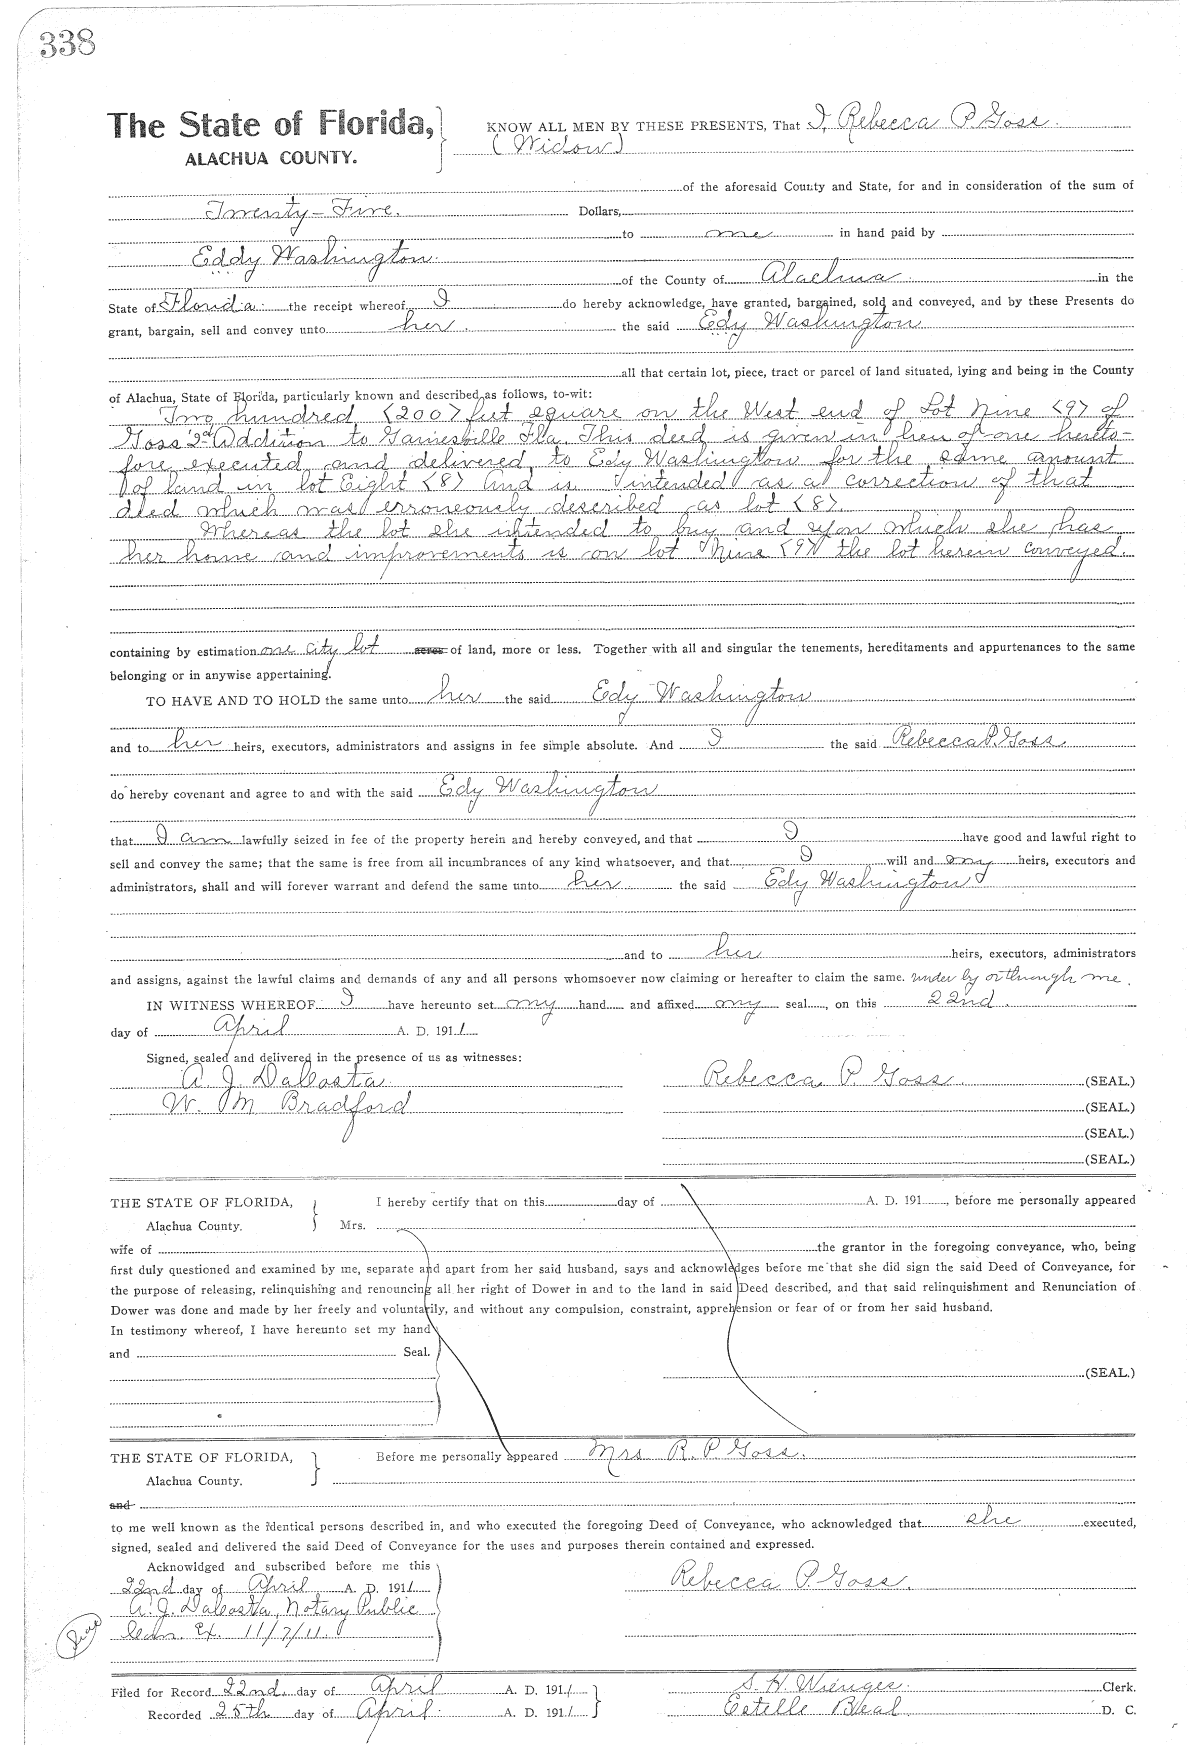 338
The State of Florida,
ALACHUA COUNTY.
KNOW ALL MEN BY THESE PRESENTS, That I, Rebecca P. Goss
(Widow)
of the aforesaid County and State, for and in consideration of the sum of
Twenty-Five. Dollars,
to me in hand paid by
Eddy Washington
of the County of Alachua in the
State of Florida the receipt whereof I do hereby acknowledge, have granted, bargained, sold and conveyed, and by these Presents do
grant, bargain, sell and convey unto her the said Edy Washington
all that certain lot, piece, tract or parcel of land situated, lying and being in the County
of Alachua, State of Florida, particularly known and described as follows, to-wit:
Two hundred <200> feet square on the West end of Lot Nine <9> of
Goss' 2nd Addition to Gainesville Fla. This deed is given in lieu of one hereto-
fore executed and delivered to Edy Washington for the same amount
of land in lot Eight <8> And is intended as a correction of that
deed which was erroneously described as lot <8>.
Whereas the lot she intended to buy and upon which she has
her home and improvements is on lot Nine <9> the lot herein conveyed.
containing by estimation one city lot acres of land, more or less. Together with all and singular the tenements, hereditaments and appurtenances to the same
belonging or in anywise appertaining.
TO HAVE AND TO HOLD the same unto her the said Edy Washington
and to her heirs, executors, administrators and assigns in fee simple absolute. And I the said Rebecca P. Goss
do hereby covenant and agree to and with the said Edy Washington
that I am lawfully seized in fee of the property herein and hereby conveyed, and that I have good and lawful right to
sell and convey the same; that the same is free from all incumbrances of any kind whatsoever, and that I will and my heirs, executors and
administrators, shall and will forever warrant and defend the same unto her the said Edy Washington
and to her heirs, executors, administrators
and assigns, against the lawful claims and demands of any and all persons whomsoever now claiming or hereafter to claim the same. under by or through me.
IN WITNESS WHEREOF I have hereunto set my hand and affixed my seal, on this 22nd
day of April A. D. 1911
Signed, sealed and delivered in the presence of us as witnesses:
A. J. DaCosta Rebecca P. Goss (SEAL.)
W. M Bradford (SEAL.)
(SEAL.)
(SEAL.)
THE STATE OF FLORIDA,
Alachua County.
I hereby certify that on this day of A. D. 191, before me personally appeared
Mrs.
wife of the grantor in the foregoing conveyance, who, being
first duly questioned and examined by me, separate and apart from her said husband, says and acknowledges before me that she did sign the said Deed of Conveyance, for
the purpose of releasing, relinquishing and renouncing all her right of Dower in and to the land in said Deed described, and that said relinquishment and Renunciation of
Dower was done and made by her freely and voluntarily, and without any compulsion, constraint, apprehension or fear of or from her said husband.
In testimony whereof, I have hereunto set my hand
and Seal.
(SEAL.)
THE STATE OF FLORIDA,
Alachua County.
Before me personally appeared Mrs R. P. Goss.
and
to me well known as the identical persons described in, and who executed the foregoing Deed of Conveyance, who acknowledged that she executed,
signed, sealed and delivered the said Deed of Conveyance for the uses and purposes therein contained and expressed.
Acknowldged and subscribed before me this
22nd day of April A. D. 1911
Rebecca P. Goss.
A. J. DaCosta, Notary Public
Com. Ex. 11/7/11.
Seal
Filed for Record 22nd day of April A. D. 1911 S. H. Wienges Clerk.
Recorded 25th day of April A. D. 1911 Estelle Beal D. C.